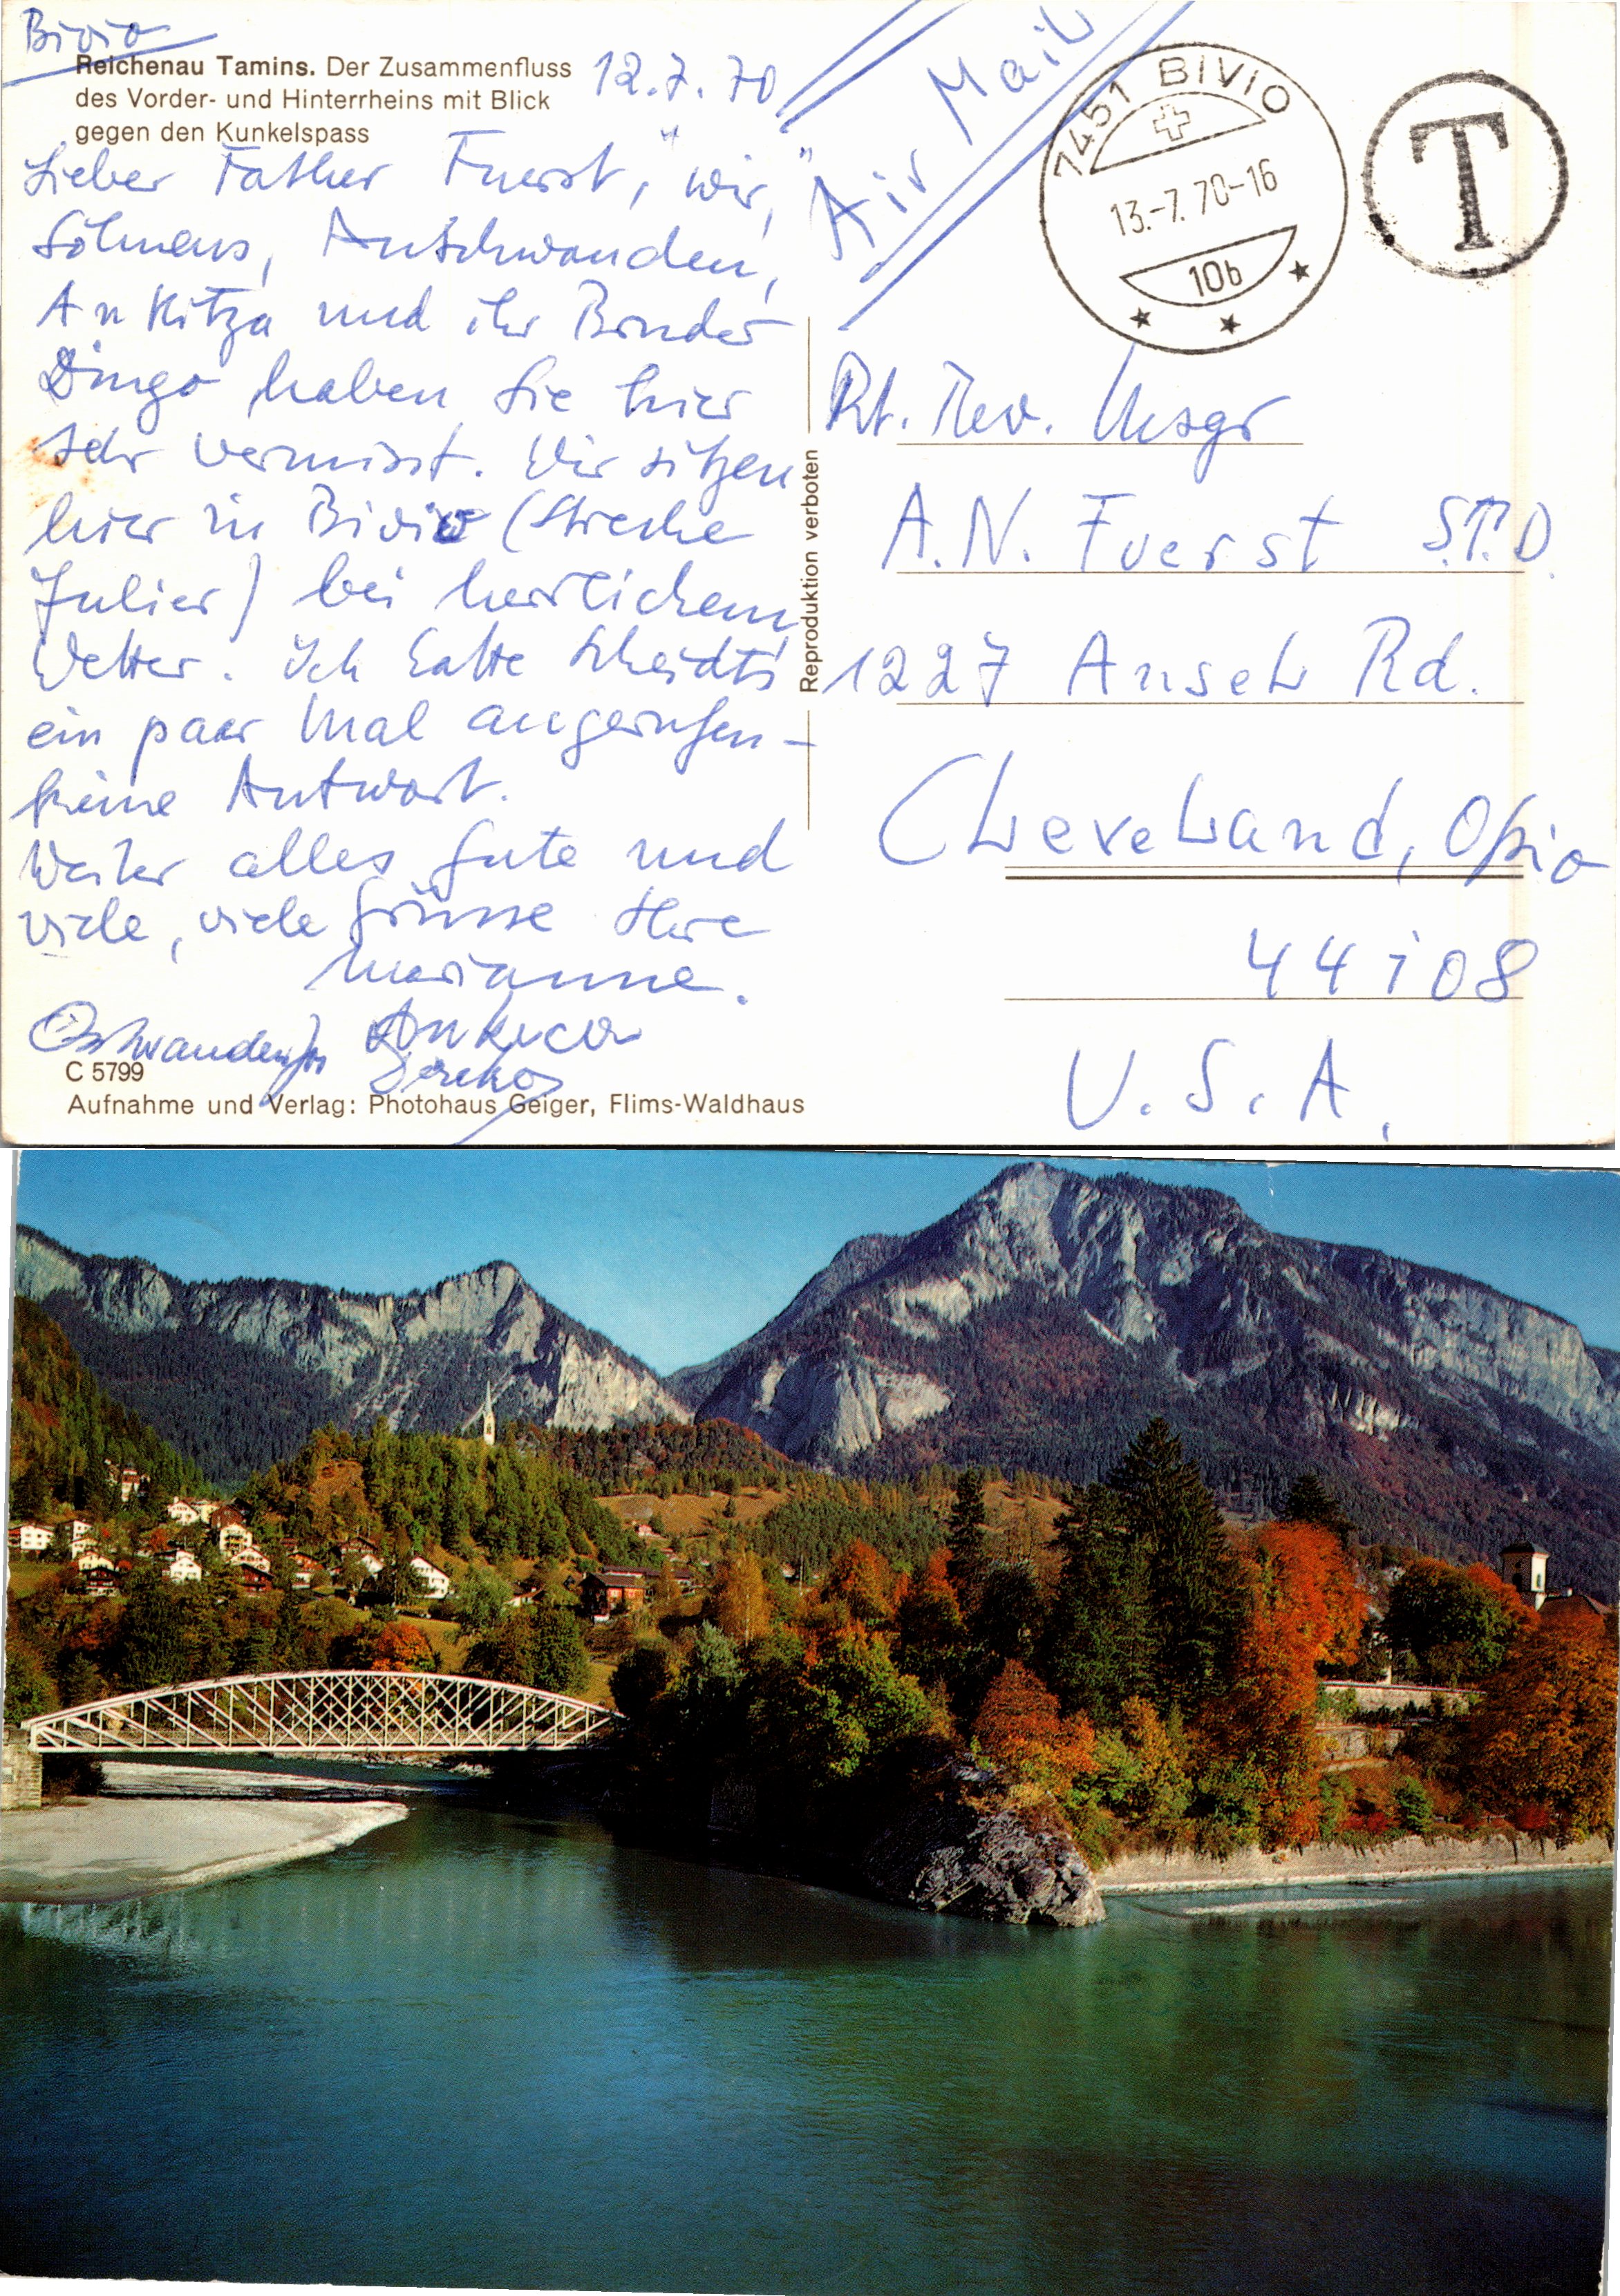 Bivio
Reichenau Tamins. Der Zusammenfluss
des Vorder- und Hinterrheins mit Blick
gegen den Kunkelspass
12.7.70
Air Mail
7451 BIVIO
13.-7.70-16
10b
T
Lieber Father Fuerst, "wir,"
und ihr Bruder
Dingo haben Sie hier
sehr vermisst. Wir sitzen
hier in Bivio (Strecke
Julier) bei herrlichem
Wetter. Ich hatte Scheidts
ein paar Mal angerufen –
keine Antwort.
Weiter alles Gute und
viele, viele Grüsse Ihre
Marianne.
C 5799
Aufnahme und Verlag: Photohaus Geiger, Flims-Waldhaus
Reproduktion verboten
Rt. Rev. Msgr
A.N. Fuerst S.T.D.
1227 Ansel Rd.
Cleveland, Ohio
44108
U.S.A.